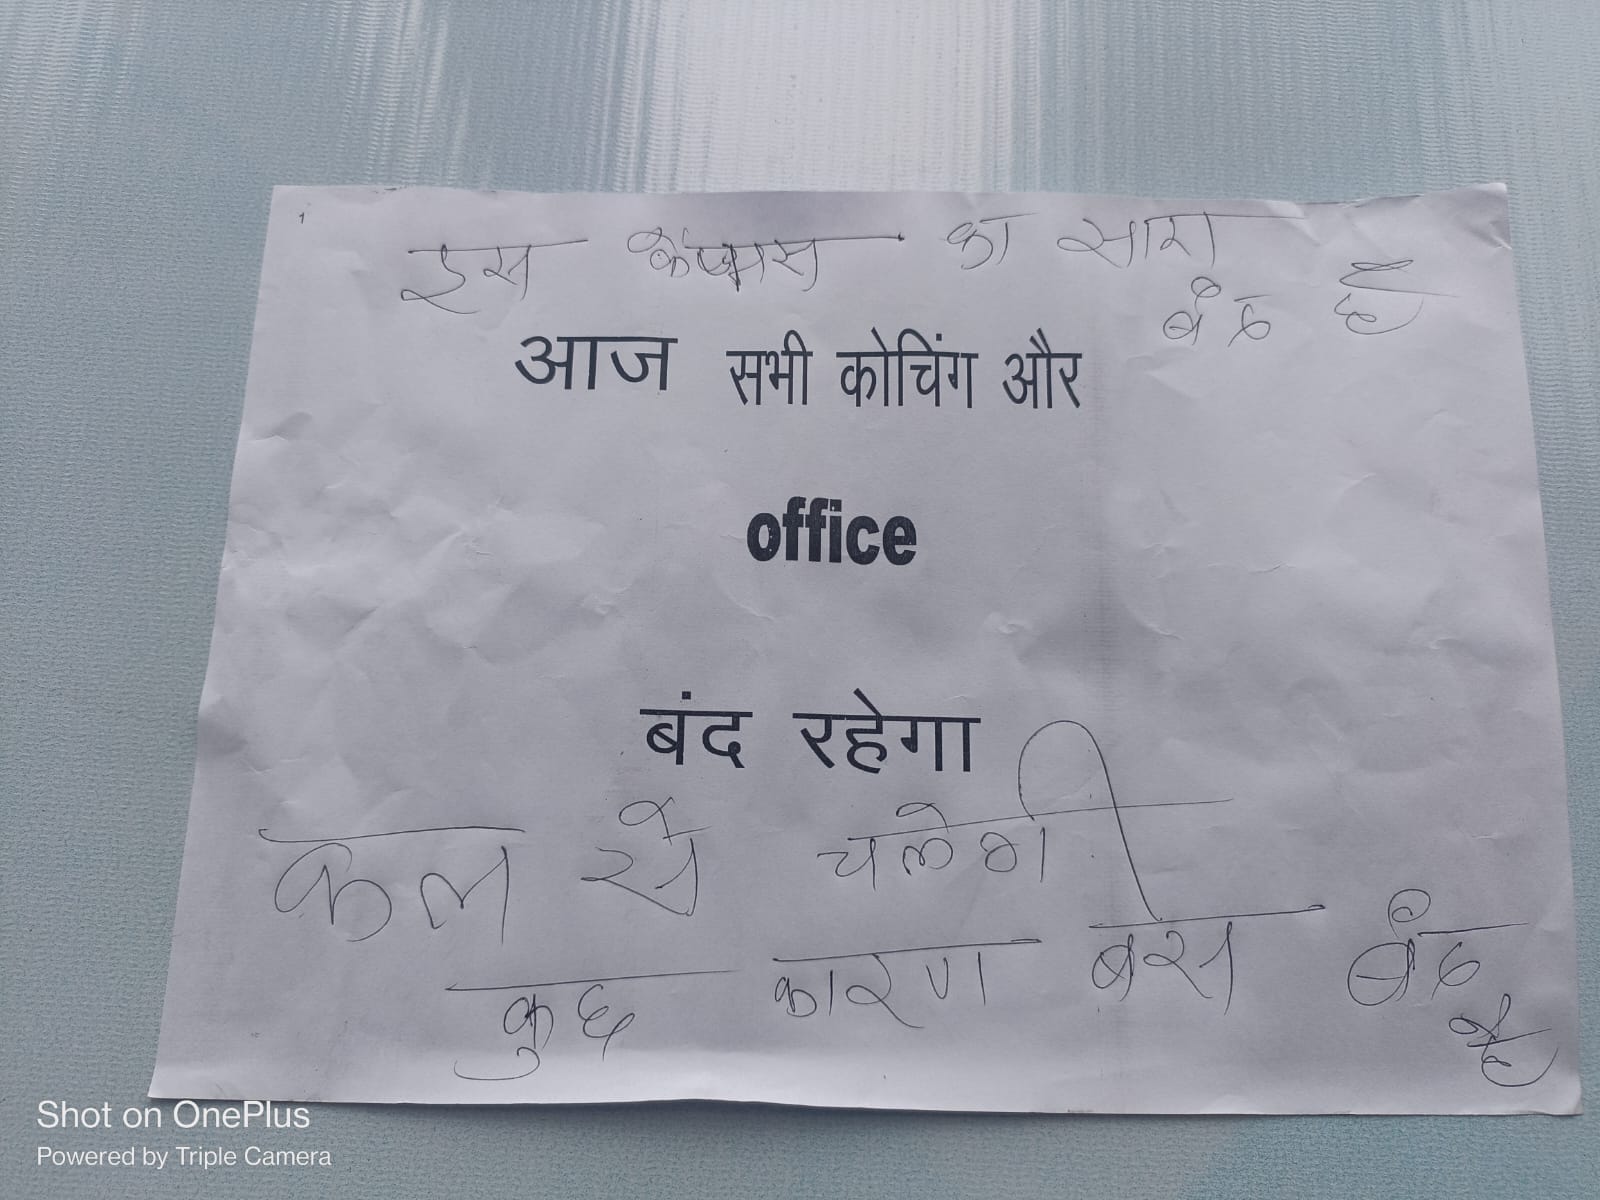 1
इस कैम्पास का सारा
बंद है
आज सभी कोचिंग और
office
बंद रहेगा
कल से चलेगी
कुछ कारण बस बंद
है
Shot on OnePlus
Powered by Triple Camera